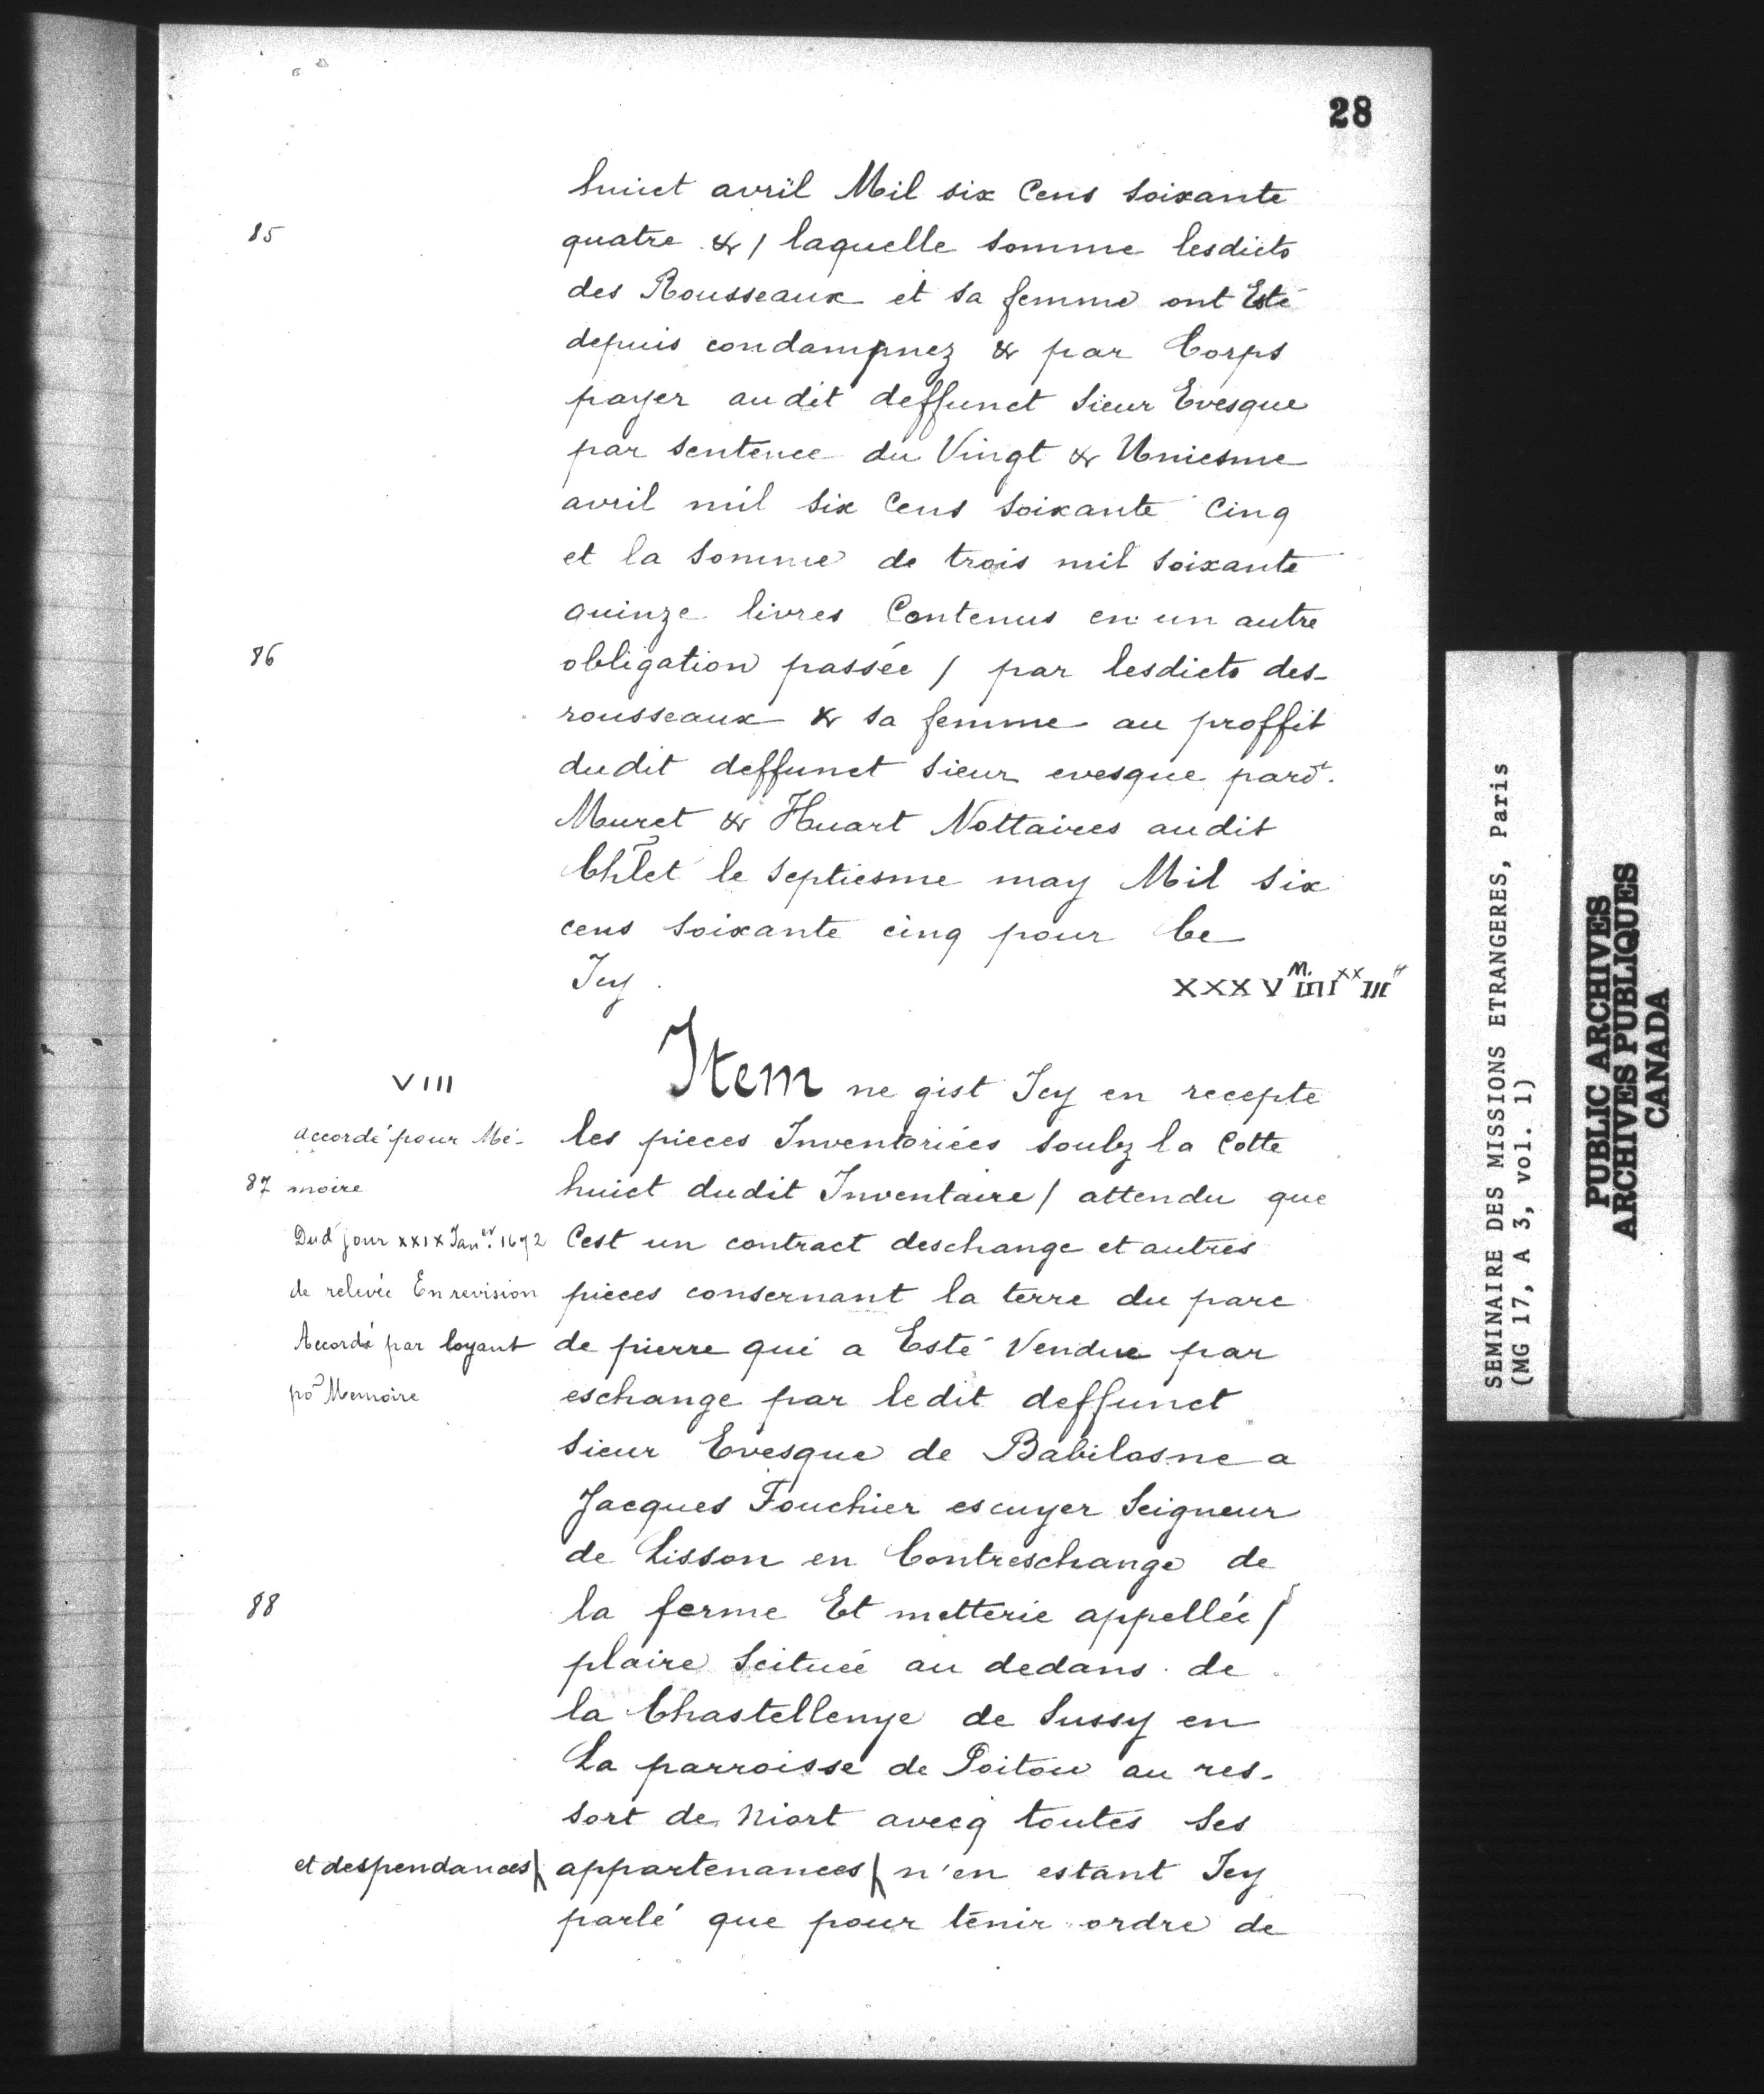 28
huict avril Mil six Cens soixante
85 quatre & / laquelle somme lesdicts
des Rousseaux et sa femme ont Esté
depuis condampnez & par Corps
payer audit deffunct sieur Evesque
par sentence du Vingt & Uniesme
avril mil six Cens soixante Cinq
et la somme de trois mil soixante
quinze livres Contenus en un autre
86 obligation passée / par lesdicts des-
rousseaux & sa femme au proffit
dudit deffunct sieur evesque pard.
Muret & Huart Nottaires audit
Chlet le septiesme may Mil six
cens soixante cinq pour Ce
Icy. XXXV M. IIII XX III #
VIII Item ne gist Icy en recepte
accordé pour Mé- les pieces Inventoriées soubz la Cotte
87 moire huict dudit Inventaire / attendu que
Dud jour XXIX Janer. 1672 Cest un contract deschange et autres
de relevée En revision pieces consernant la terre du parc
Accordé par loyant de pierre qui a Esté Vendue par
po Memoire eschange par ledit deffunct
sieur Evesque de Babilosne a
Jacques Fouchier escuyer Seigneur
de Lisson en Contreschange de
88 la ferme Et metterie appellée /
plaire scituée au dedans de
la Chastellenye de Sussy en
La parroisse de Poitou au res-
sort de Niort avecq toutes ses
et despendances appartenances n'en estant Icy
parlé que pour tenir ordre de
SEMINAIRE DES MISSIONS ETRANGERES, Paris
(MG 17, A 3, vol. 1)
PUBLIC ARCHIVES
ARCHIVES PUBLIQUES
CANADA